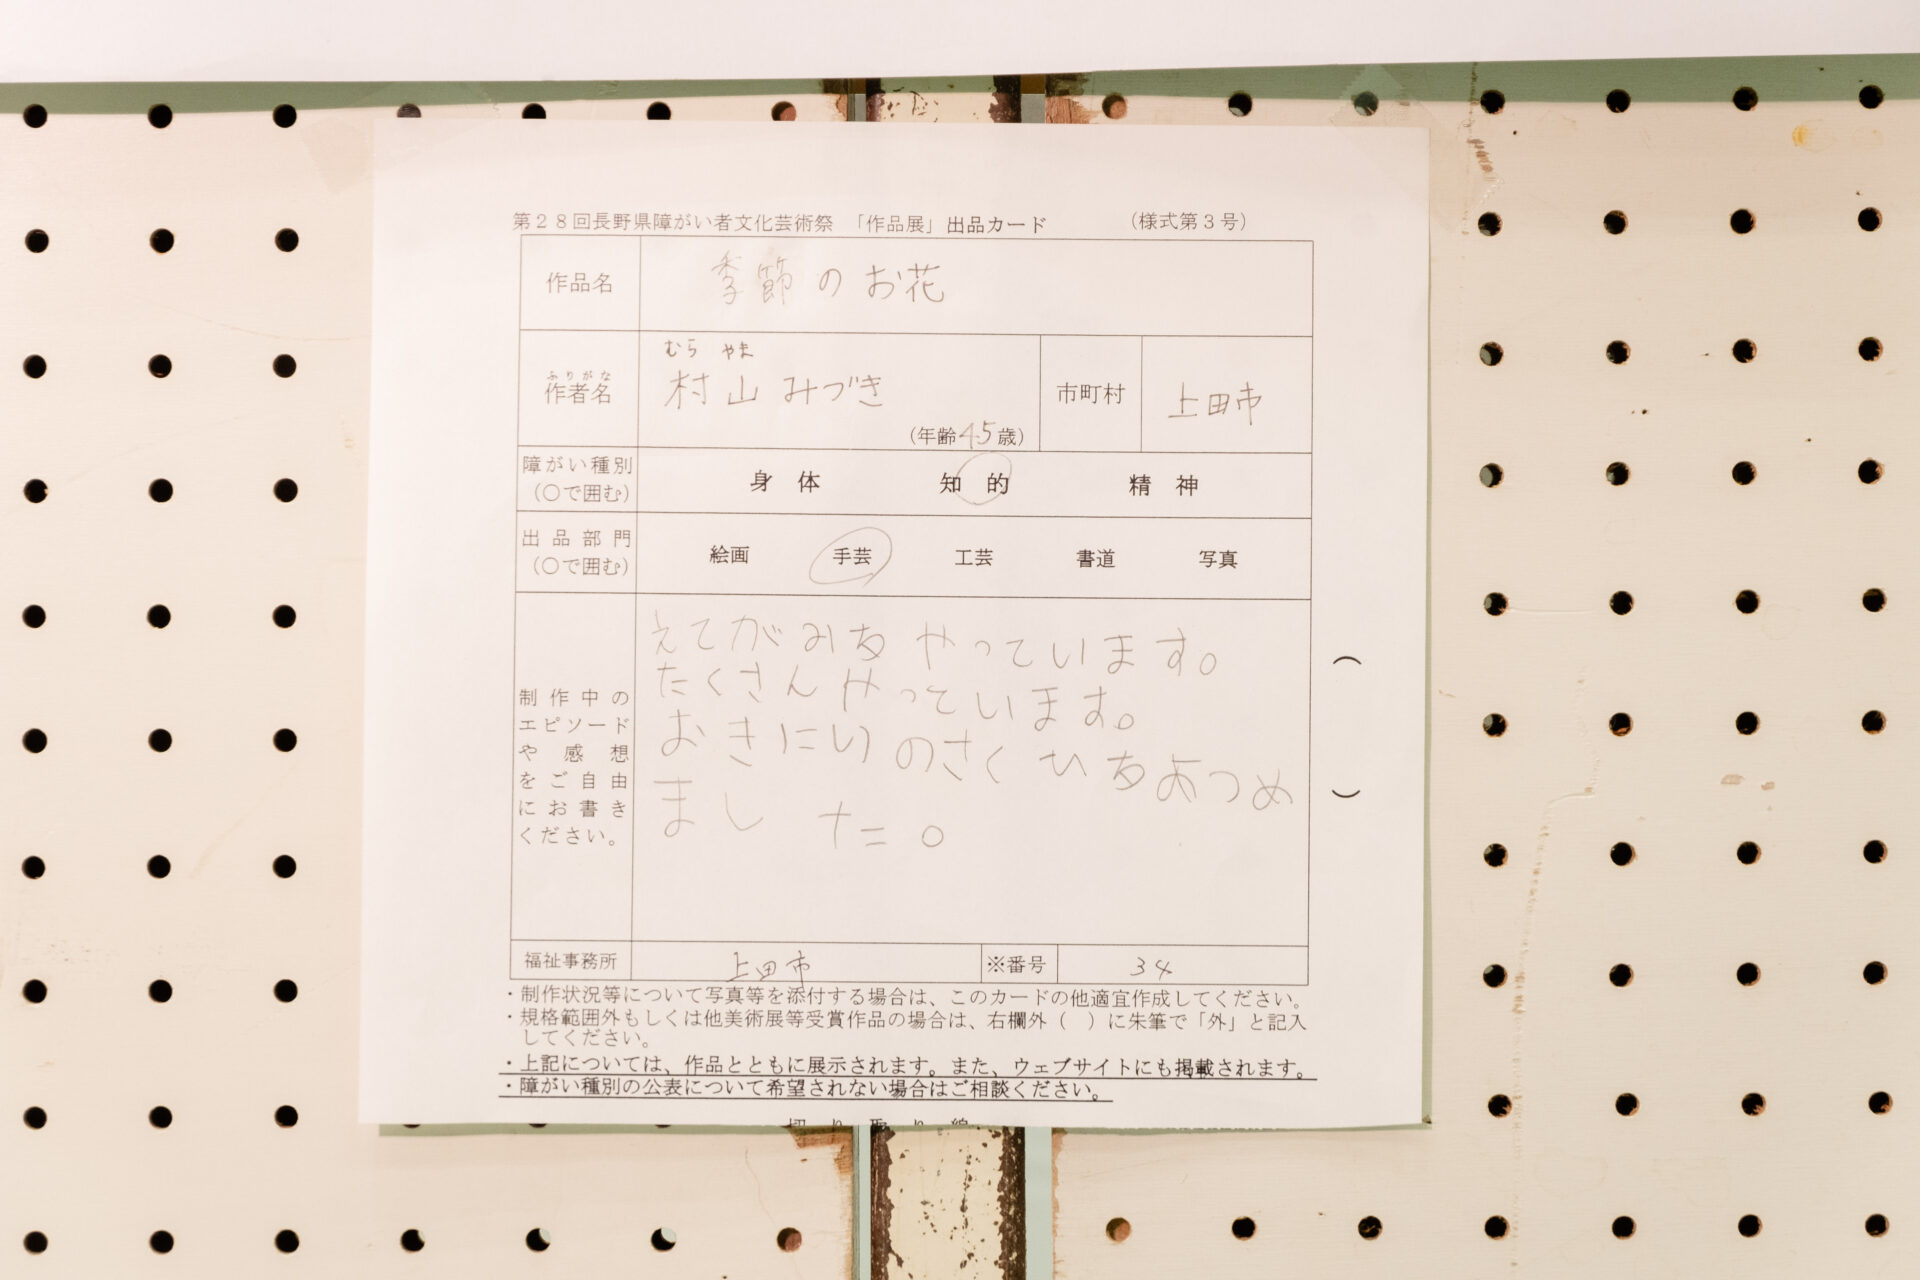 第28回長野県障がい者文化芸術祭 「作品展」出品カード (様式第3号)
作品名 季節のお花
むら やま
ふりがな
作者名 村山みづき 市町村 上田市
(年齢45歳)
障がい種別
(○で囲む) 身体 知的 精神
出品部門
(○で囲む) 絵画 手芸 工芸 書道 写真
制作中の
エピソード
や感想
をご自由
にお書き
ください。
えてがみを やっています。
たくさんやっています。
おきにいりのさくひを あつめ
ました。
( )
福祉事務所 上田市 ※番号 34
・制作状況等について写真等を添付する場合は、このカードの他適宜作成してください。
・規格範囲外もしくは他美術展等受賞作品の場合は、右欄外( )に朱筆で「外」と記入
してください。
・上記については、作品とともに展示されます。また、ウェブサイトにも掲載されます。
・障がい種別の公表について希望されない場合はご相談ください。
切り取り線